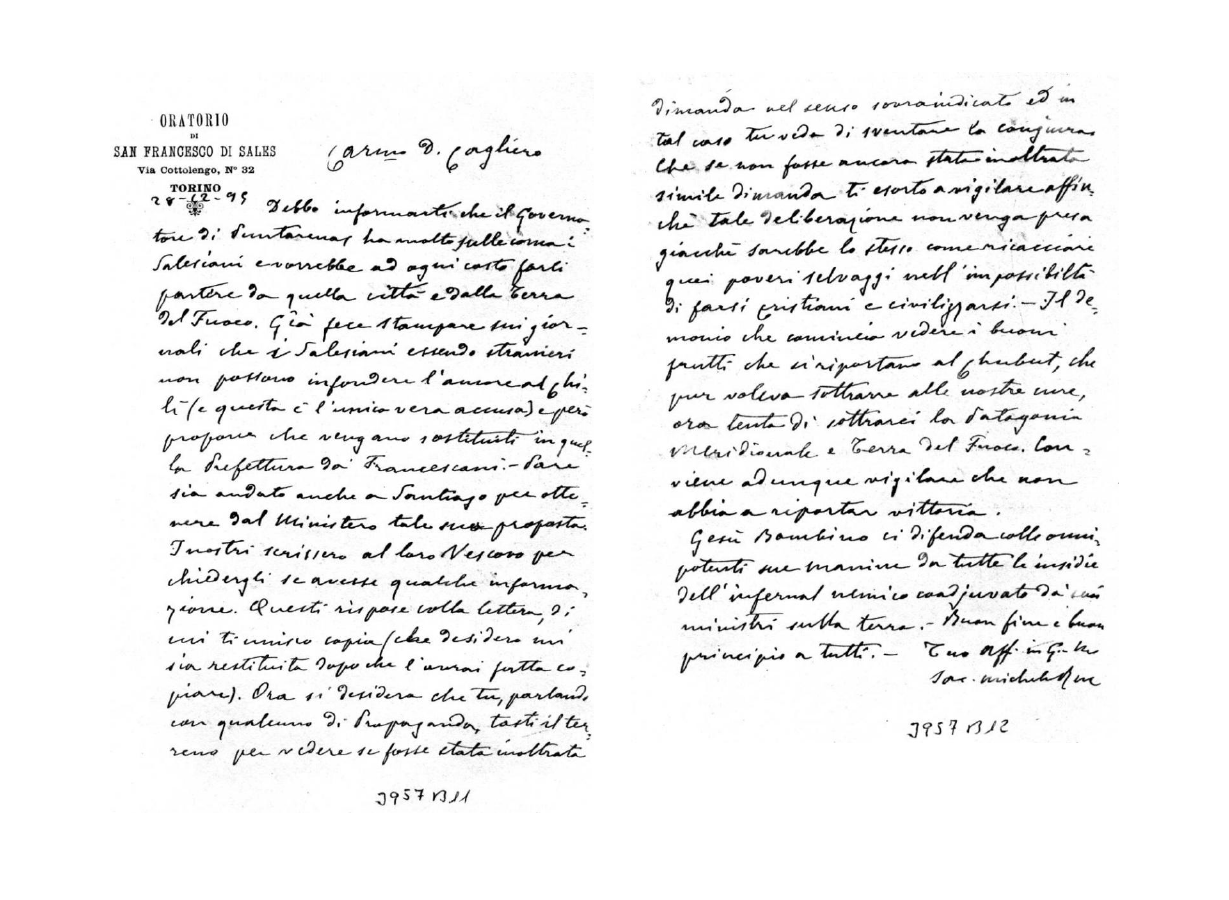 ORATORIO
DI
SAN FRANCESCO DI SALES
Via Cottolengo, N° 32
TORINO
28-12-95
Carmo D. Cagliero
Debbo informarti che il Governa-
tore di Puntarenas ha molto sulle corna i
Salesiani e vorrebbe ad ogni costo farli
partire da quella città e dalla Terra
del Fuoco. Già fece stampare sui gior-
nali che i Salesiani essendo stranieri
non possono infondere l'amore al Chi-
lì (e questa è l'unica vera accusa) e però
propone che vengano sostituiti in quel-
la Prefettura da' Francescani. - Pare
sia andato anche a Santiago per otte-
nere dal Ministero tale sua proposta.
I nostri scrissero al loro Vescovo per
chiedergli se avesse qualche informa-
zione. Questi rispose colla lettera, di
cui ti unisco copia (che desidero mi
sia restituita dopo che l'avrai fatta co-
piare). Ora si desidera che tu, parlando
con qualcuno di Propaganda, tasti il ter-
reno per vedere se fosse stata inoltrata
J957 B11
dimanda nel senso sovraindicato ed in
tal caso tu veda di sventare la congiura
Che se non fosse ancora stata inoltrata
simile dimanda ti esorto a vigilare affin-
chè tale deliberazione non venga presa
giacchè sarebbe lo stesso come ricacciare
quei poveri selvaggi nell'impossibiltà
di farsi cristiani e civilizzarsi. - Il de-
monio che comincia vedere i buoni
frutti che si riportano al Chubut, che
pur voleva sottrarre alle nostre cure,
ora tenta di sottrarci la Patagonia
Meridionale e Terra del Fuoco. Con-
viene adunque vigilare che non
abbia a riportar vittoria.
Gesù Bambino ci difenda colle onni-
potenti sue manine da tutte le insidie
dell'infernal nemico coadjuvato da' suoi
ministri sulla terra. - Buon fine e buon
principio a tutti. - Tuo aff. in G. e M
Sac. Michele Rua
J957 B12